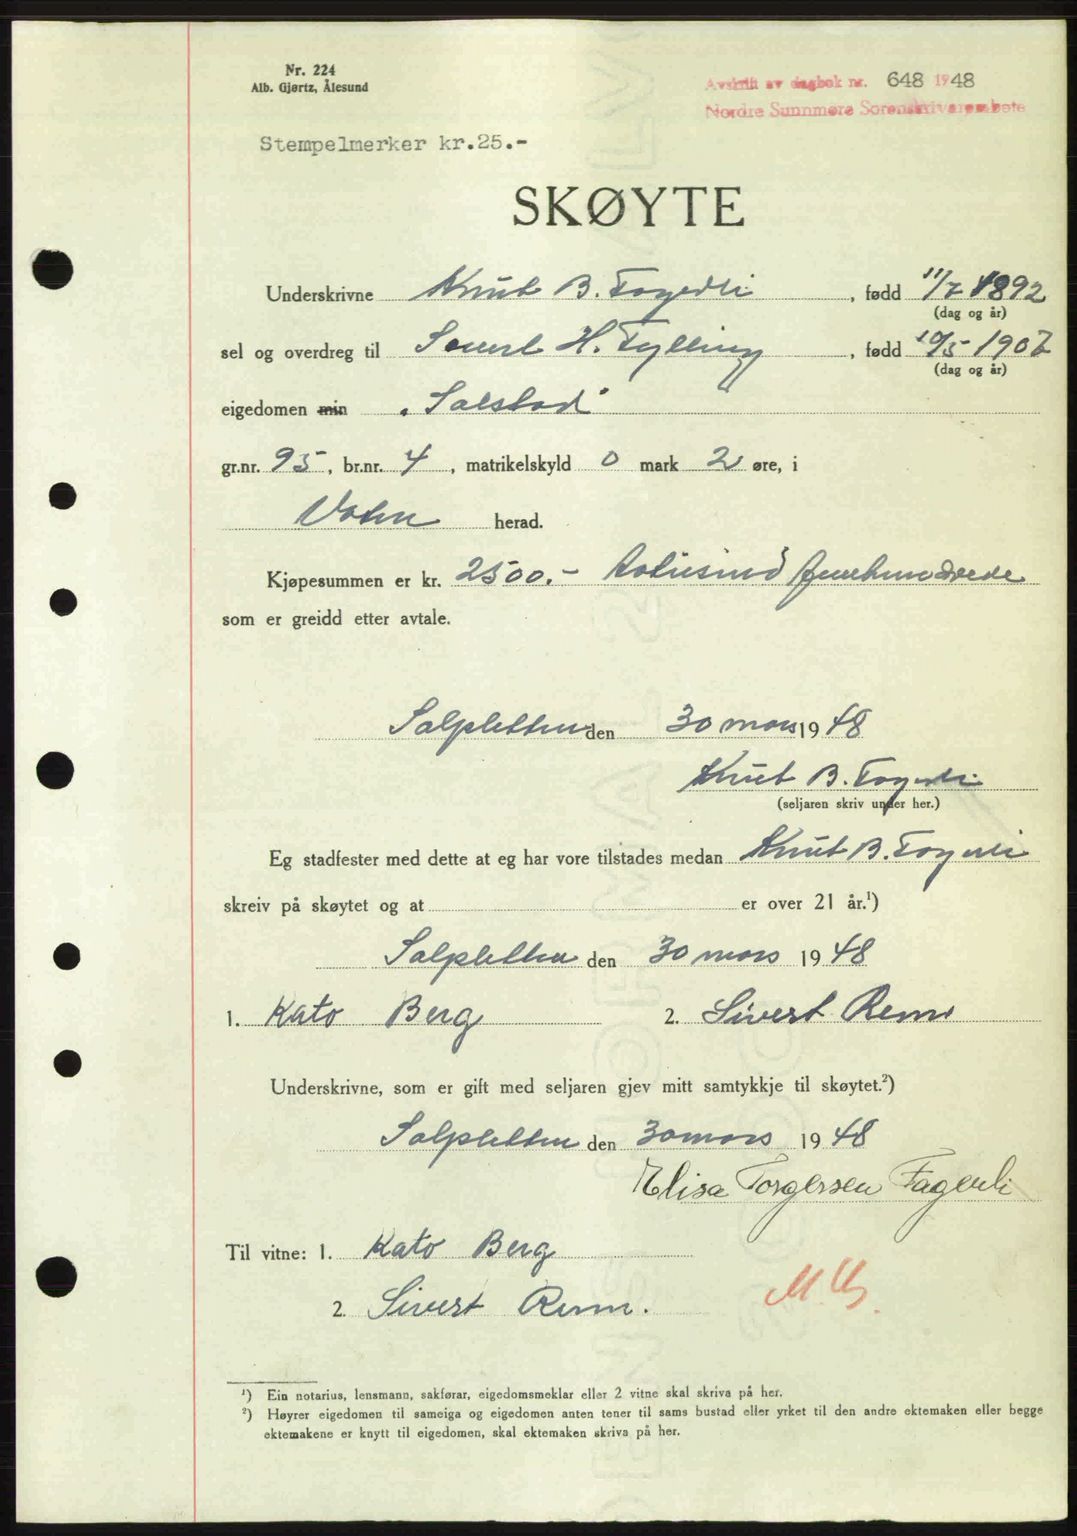 Nr. 224
Alb. Gjørtz, Ålesund
Avskrift av dagbok nr. 648 1948
Nordre Sunnmøre Sorenskriverembete
Stempelmerker kr.25.-
SKØYTE
Underskrivne Knut B. Fagerli, fødd 11/7 1892
(dag og år)
sel og overdreg til H. Tylling, fødd 10/5 1907
(dag og år)
eigedomen min "Solstad"
gr.nr. 95, br.nr. 4, matrikelskyld 0 mark 2 øre, i
Vatne herad.
Kjøpesummen er kr. 2500.- totusind femhundrede
som er greidd etter avtale.
den 30 mars 1948
Knut B. Fagerli
(seljaren skriv under her.)
Eg stadfester med dette at eg har vore tilstades medan Knut B. Fagerli
skreiv på skøytet og at er over 21 år.¹)
den 30 mars 1948
1. Kato Berg 2. Sivert
Underskrivne, som er gift med seljaren gjev mitt samtykkje til skøytet.²)
den 30 mars 1948
Elisa Torgersen Fagerli
Til vitne: 1. Kato Berg
2. Sivert
¹) Ein notarius, lensmann, sakførar, eigedomsmeklar eller 2 vitne skal skriva på her.
²) Høyrer eigedomen til sameiga og eigedomen anten tener til sams bustad eller yrket til den andre ektemaken eller begge
ektemakene er knytt til eigedomen, skal ektemaken skriva på her.